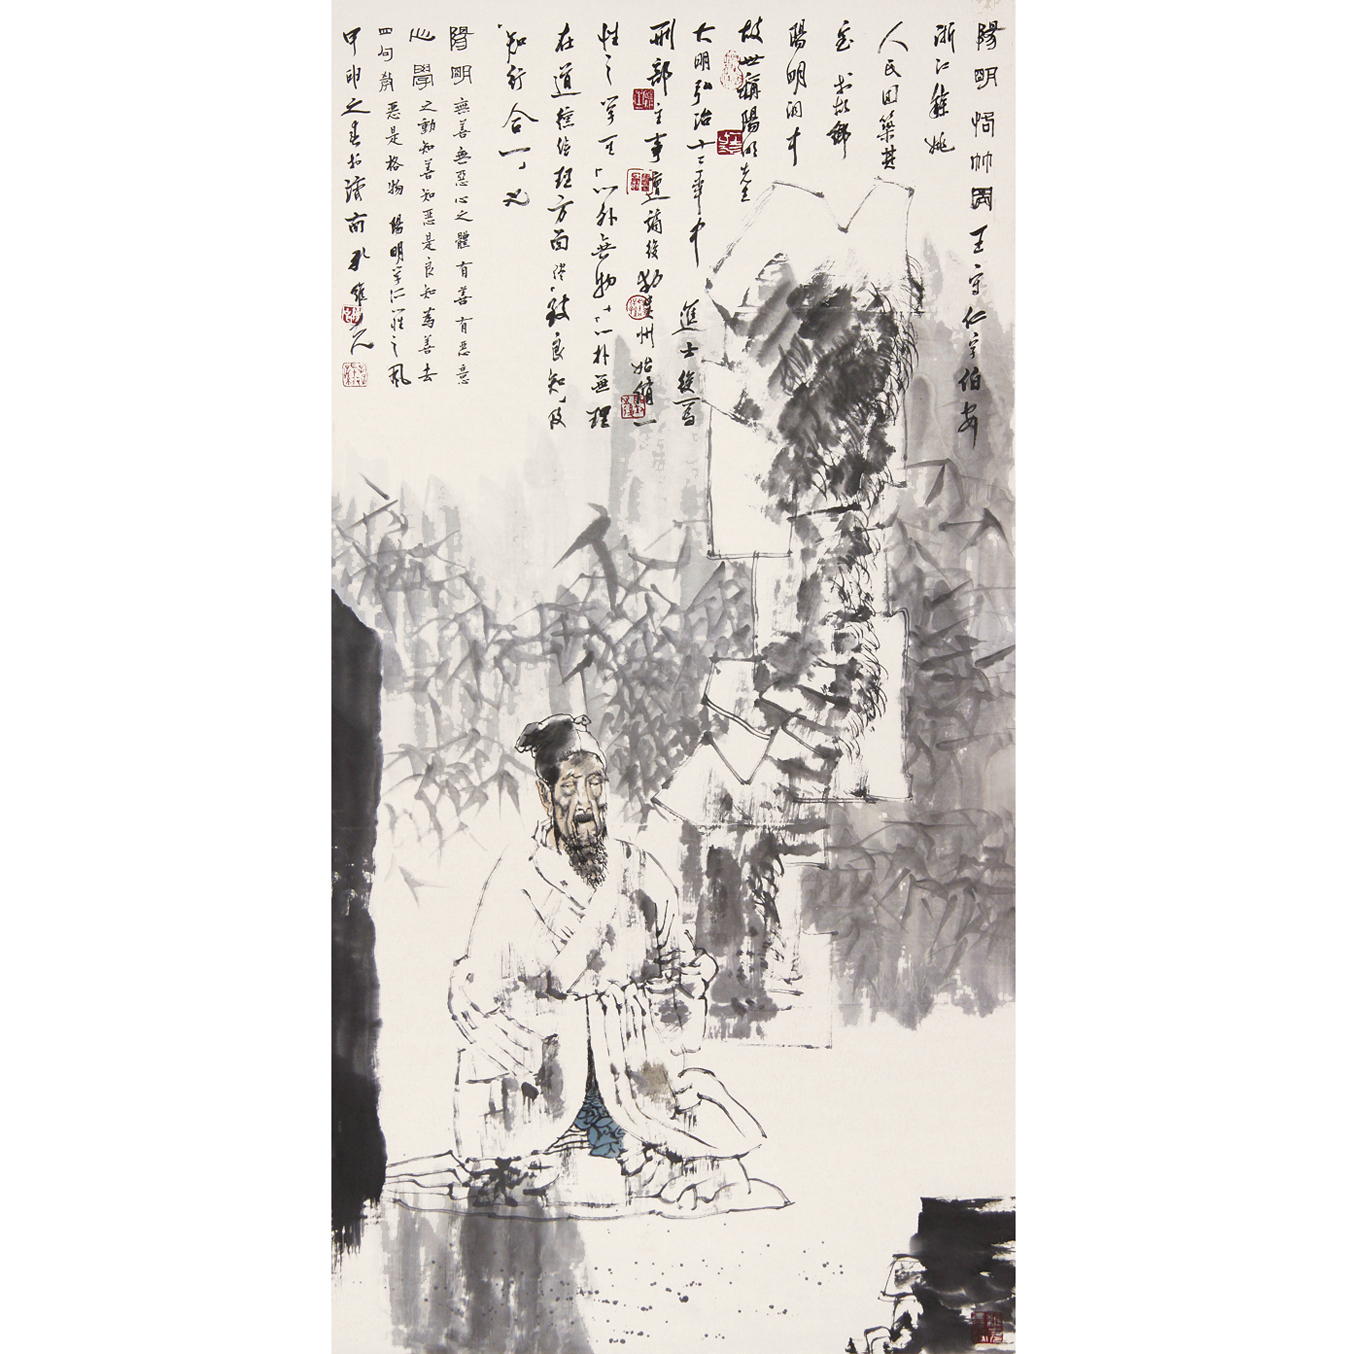 陽明格竹圖 王守仁字伯安
浙江餘姚
人民因築其
室於故鄉
陽明洞中
故世稱陽明先生
大明弘治十二年中
進士後爲
刑部主事 謫後 州始
性之學 「心外無物 心外無理
在道德倫理方面 「致良知」及
「知行合一」也
陽明 無善無惡心之體 有善有惡意
心學 之動 知善知惡是良知 爲善去
四句教 惡是格物 陽明學 之風
甲申之春於濟南 孔維克